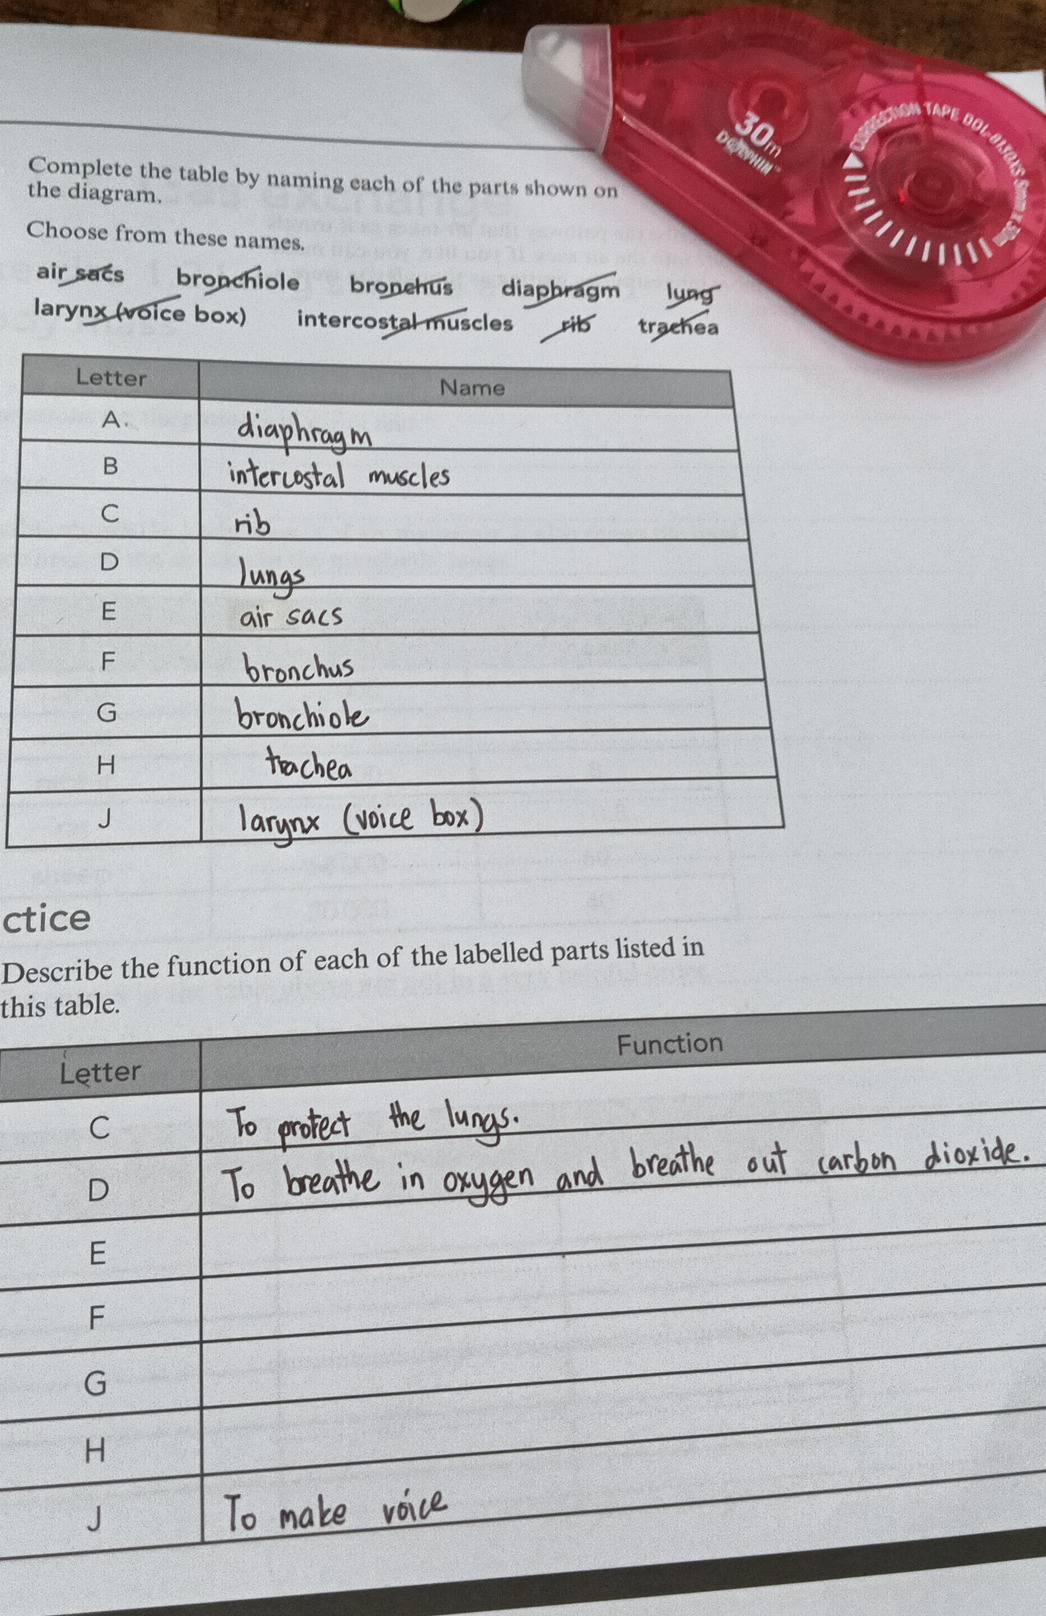 30m
DOLPHIN™
CORRECTION TAPE DOL-013OXS 5mm x 30m
Complete the table by naming each of the parts shown on
the diagram.
Choose from these names.
air sacs bronchiole bronchus diaphragm lung
larynx (voice box) intercostal muscles rib trachea
Letter Name
A. diaphragm
B intercostal muscles
C rib
D lungs
E air sacs
F bronchus
G bronchiole
H trachea
J larynx (voice box)
ctice
Describe the function of each of the labelled parts listed in
this table.
Letter Function
C To protect the lungs.
D To breathe in oxygen and breathe out carbon dioxide.
E
F
G
H
J To make voice